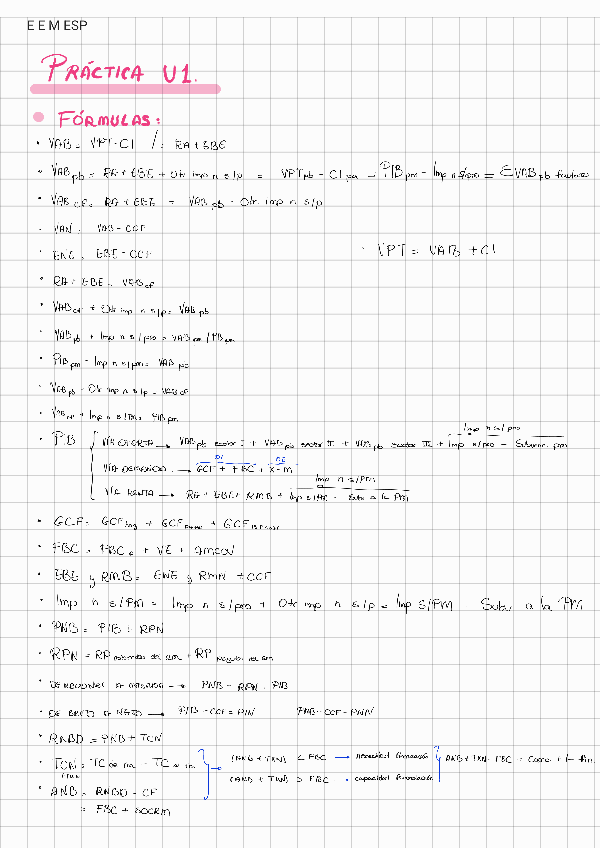 E E M ESP
PRÁCTICA U1.
FÓRMULAS:
• VAB = VPT - CI / = RA + EBE
• VAB pb = RA + EBE + Otr imp n s/p = VPT pb - CI pa = PIB pm - Imp n s/pro = ΣVAB pb
• VAB CF = RA + EBE = VAB pb - Otr imp n s/p
• VAN = VAB - CCF
• ENE = EBE - CCF
• VPT = VAB + CI
• RA + EBE = VAB CF
• VAB CF + Otr imp n s/p = VAB pb
• VAB pb + Imp n s/pro = VAB pm / PIB pm
• PIB pm - Imp n s/pro = VAB pb
• VAB pb - Otr imp n s/p = VAB CF
• + Imp n s/ = PIB pm
Imp n s/pro
• PIB VÍA OFERTA → VAB pb sector I + VAB pb sector II + VAB pb sector III + Imp s/pro - Subven. pro
DI DE
VÍA DEMANDA → GCF + FBC + X - M
Imp n s/PM
VÍA RENTA → RA + EBE + RMB + Imp s/PM - Subv a la PM
• GCF = GCF + GCF + GCF
• FBC = FBC + VE + AMCOV
• EBE y RMB = ENE y RMN + CCF
• Imp n s/PM = Imp n s/pro + Otr imp n s/p = Imp s/PM Subv a la PM
• PNB = PIB + RPN
• RPN = RP - RP
• DE NACIONAL A INTERIOR → PNB - RPN = PIB
• DE BRUTO A NETO → PIB - CCF = PIN PNB - CCF = PNN
• RNBD = PNB + TCN
• TCN = TC - TC (ANB + TKN) < FBC → necesidad financiación ANB + TKN - FBC =
• ANB = RNBD - CF (ANB + TKN) > FBC → capacidad financiación
= FBC + SOCRM